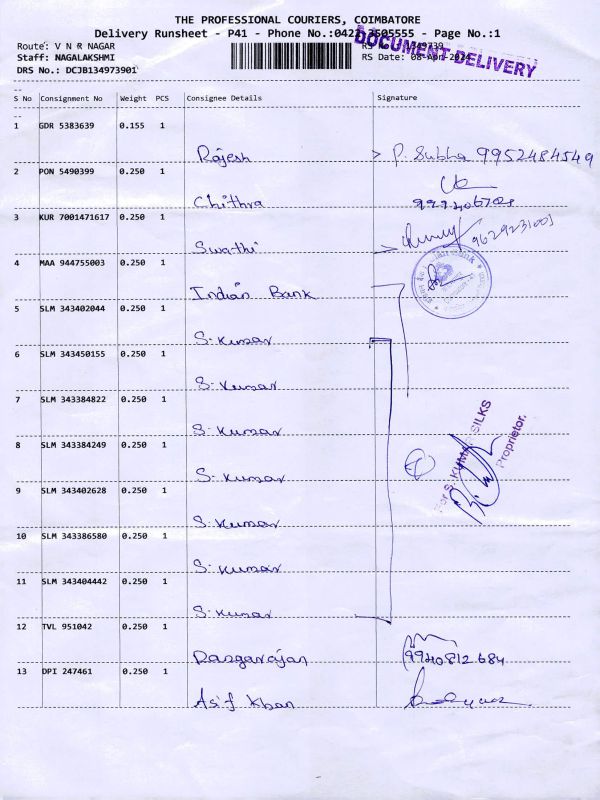 THE PROFESSIONAL COURIERS, COIMBATORE
Delivery Runsheet - P41 - Phone No.:0422 3505555 - Page No.:1
Route: V N R NAGAR
RS No : 1349739
DOCUMENT DELIVERY
Staff: NAGALAKSHMI
RS Date: 08-Apr-2024
DRS No.: DCJB134973901
S No Consignment No Weight PCS Consignee Details Signature
--
1 GDR 5383639 0.155 1
Rajesh > P. Subha 9952484549
2 PON 5490399 0.250 1
Chithra
3 KUR 7001471617 0.250 1
Swathi 9629231001
4 MAA 944755003 0.250 1
Indian Bank
5 SLM 343402044 0.250 1
S. Kumar
6 SLM 343450155 0.250 1
S. Kumar
7 SLM 343384822 0.250 1
S. Kumar
8 SLM 343384249 0.250 1
S. Kumar
9 SLM 343402628 0.250 1
S. Kumar
10 SLM 343386580 0.250 1
S. Kumar
11 SLM 343404442 0.250 1
S. Kumar
For S. KUMAR SILKS
Proprietor.
12 TVL 951042 0.250 1
Rangarajan 9940812684
13 DPI 247461 0.250 1
Asif Khan